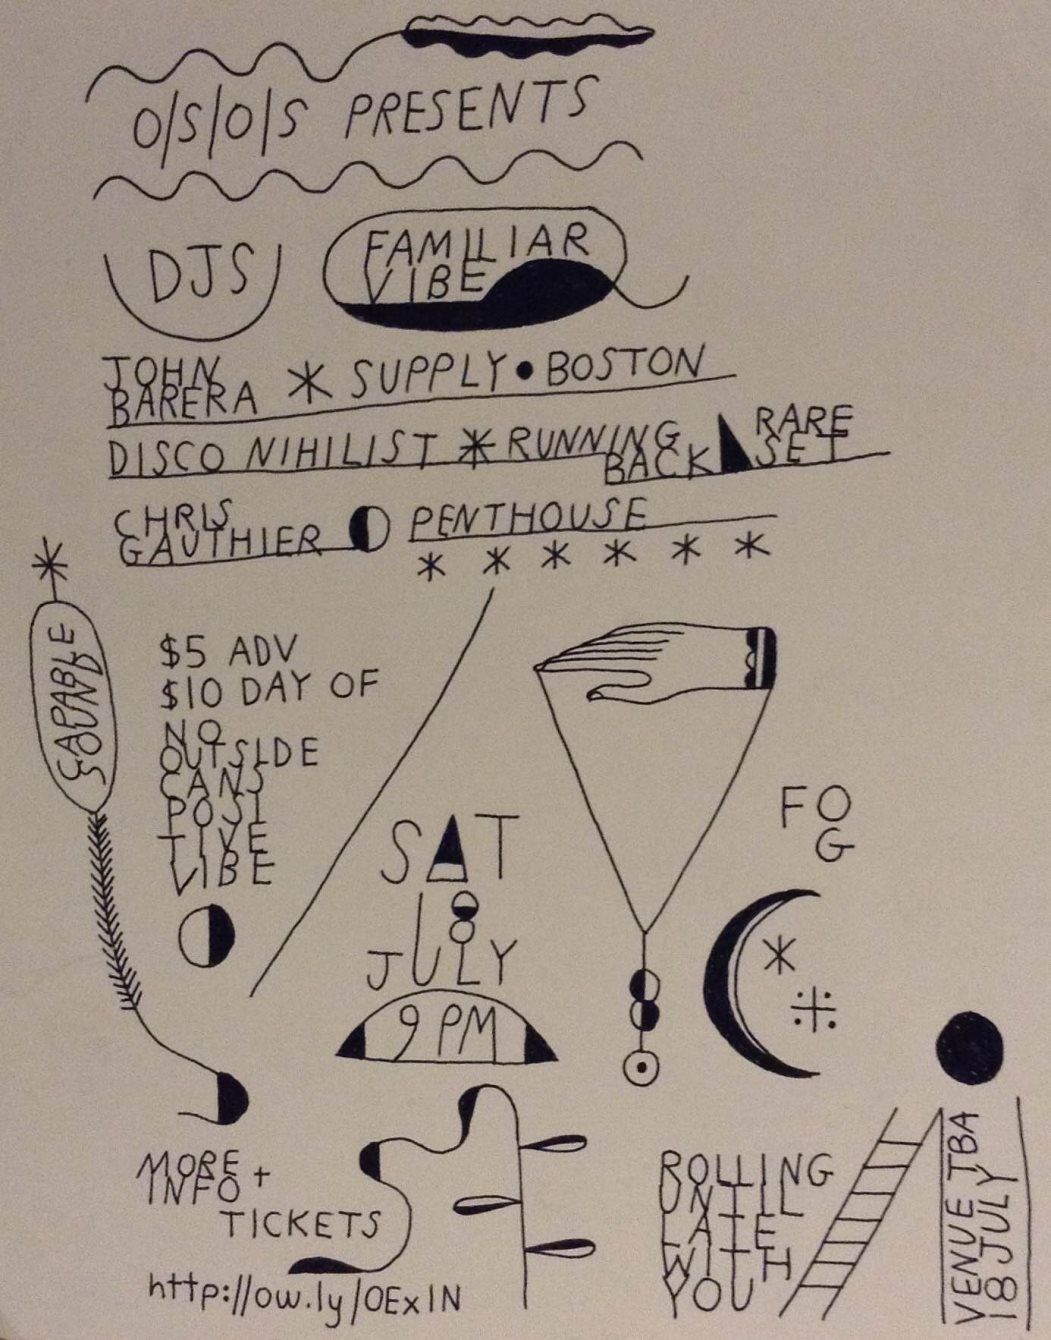 O/S/O/S PRESENTS
DJS
FAMILIAR
VIBE
JOHN
BARERA * SUPPLY • BOSTON
DISCO NIHILIST * RUNNING
BACK
RARE
SET
CHRIS
GAUTHIER
PENTHOUSE
* * * * * *
CAPABLE
SOUND
$5 ADV
$10 DAY OF
NO
OUTSIDE
CANS
POSI
TIVE
VIBE
SAT
JULY
9 PM
FO
G
MORE +
INFO
TICKETS
http://ow.ly/OExIN
ROLLING
UNTIL
LATE
WITH
YOU
VENUE TBA
18 JULY